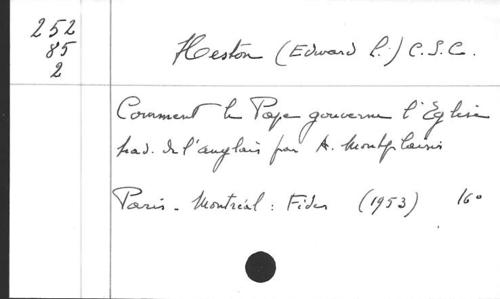 252
85
2
Heston (Edward L.) C.S.C.
Comment le Pape gouverne l'Eglise
trad. de l'anglais par A. Montplaisir
Paris - Montréal : Fides (1953) 16°